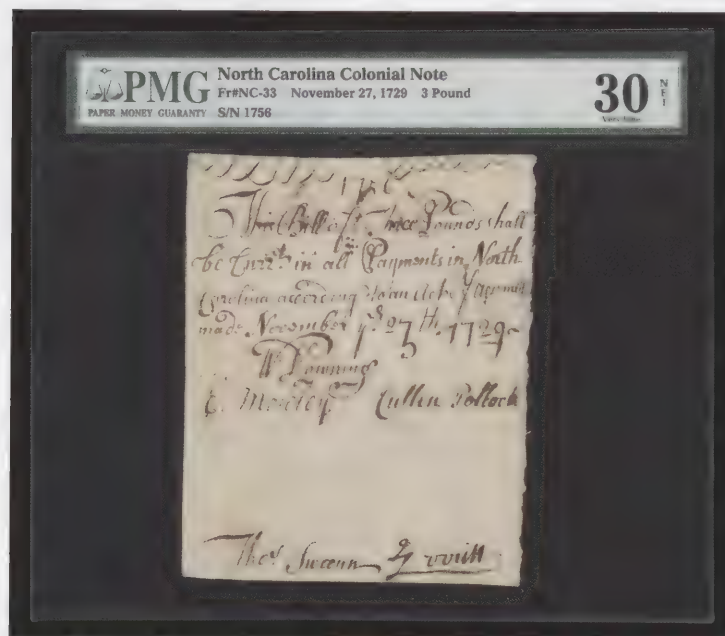 PMG
PAPER MONEY GUARANTY
North Carolina Colonial Note
Fr#NC-33 November 27, 1729 3 Pound
S/N 1756
30 NET
Very Fine
This Bill of Three Pounds shall
be Curr.t in all Payments in North
Carolina according to an Act of
made November ye 27th. 1729
Wm Downing
E. Moseley Cullen Pollock
Thos Swann